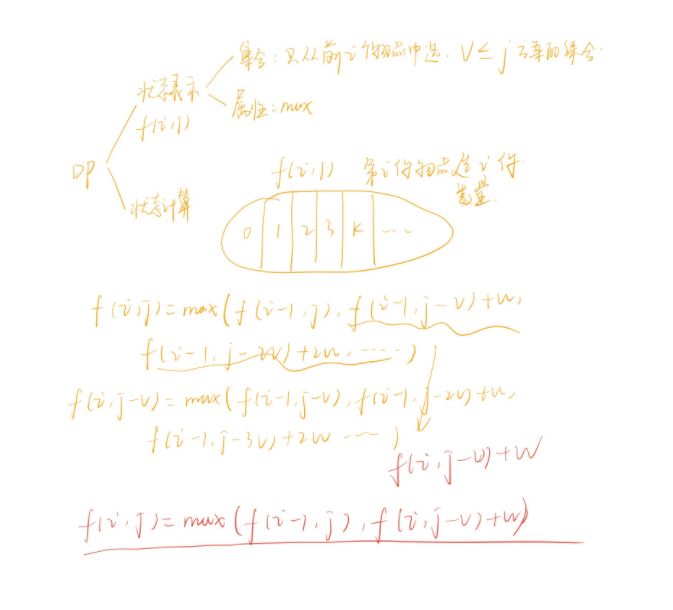 集合：只从前i个物品中选，V≤j 方案的集合.
状态表示
f(i,j)
属性：max
DP
状态计算
f(i,j) 第i件物品选i件
数量.
0 1 2 3 k ...
f(i,j)=max(f(i-1,j), f(i-1,j-v)+w,
f(i-1,j-2v)+2w, ......)
f(i,j-v)=max(f(i-1,j-v), f(i-1,j-2v)+w,
f(i-1,j-3v)+2w ....)
f(i,j-v)+w
f(i,j)=max(f(i-1,j), f(i,j-v)+w)